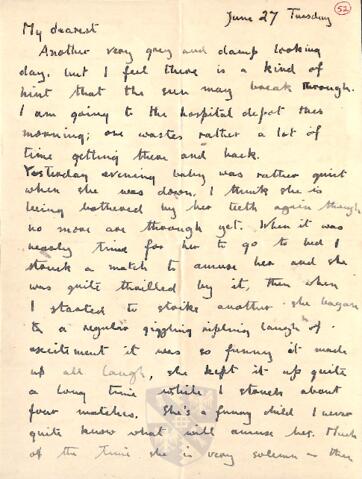 June 27 Tuesday
52
My dearest
Another very grey and damp looking
day, but I feel there is a kind of
hint that the sun may break through.
I am going to the hospital depot this
morning; one wastes rather a lot of
time getting there and back.
Yesterday evening baby was rather quiet
when she was down. I think she is
being bothered by her teeth again though
no more are through yet. When it was
nearly time for her to go to bed I
struck a match to amuse her and she
was quite thrilled by it, then when
I started to strike another she began
a regular giggling rippling laugh of
excitement it was so funny it made
us all laugh, she kept it up quite
a long time while I struck about
four matches. She's a funny child I never
quite know what will amuse her. Much
of the time she is very solemn & then